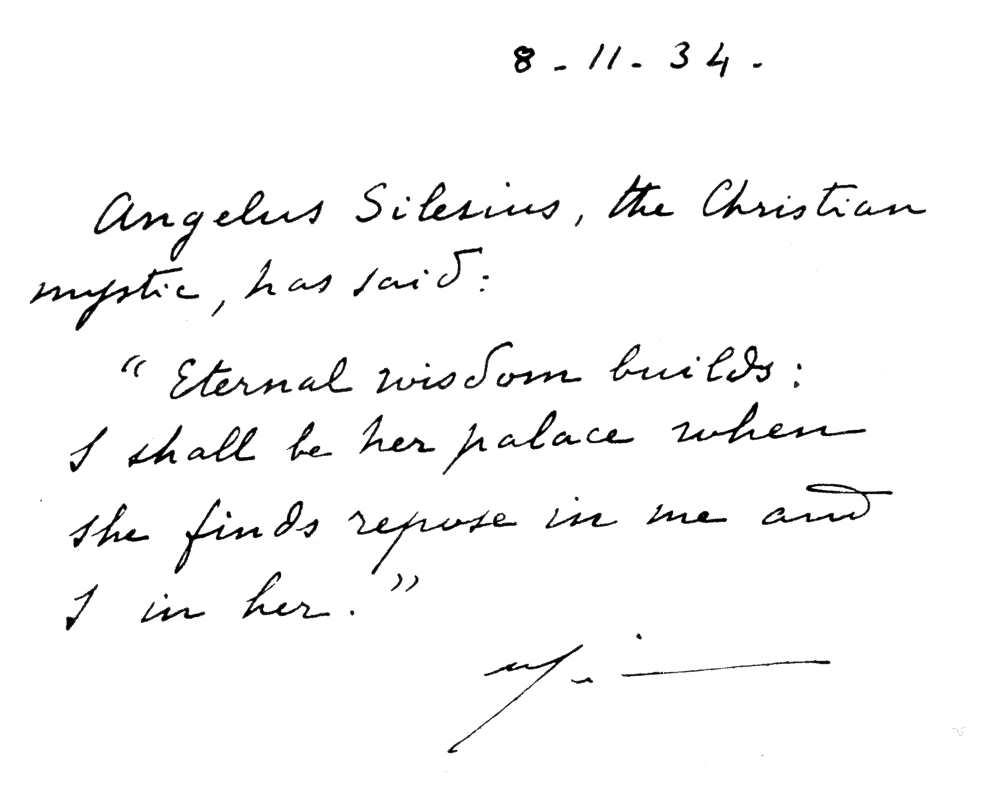 8-11-34.
Angelus Silesius, the Christian
mystic, has said:
"Eternal wisdom builds:
I shall be her palace when
she finds repose in me and
I in her."